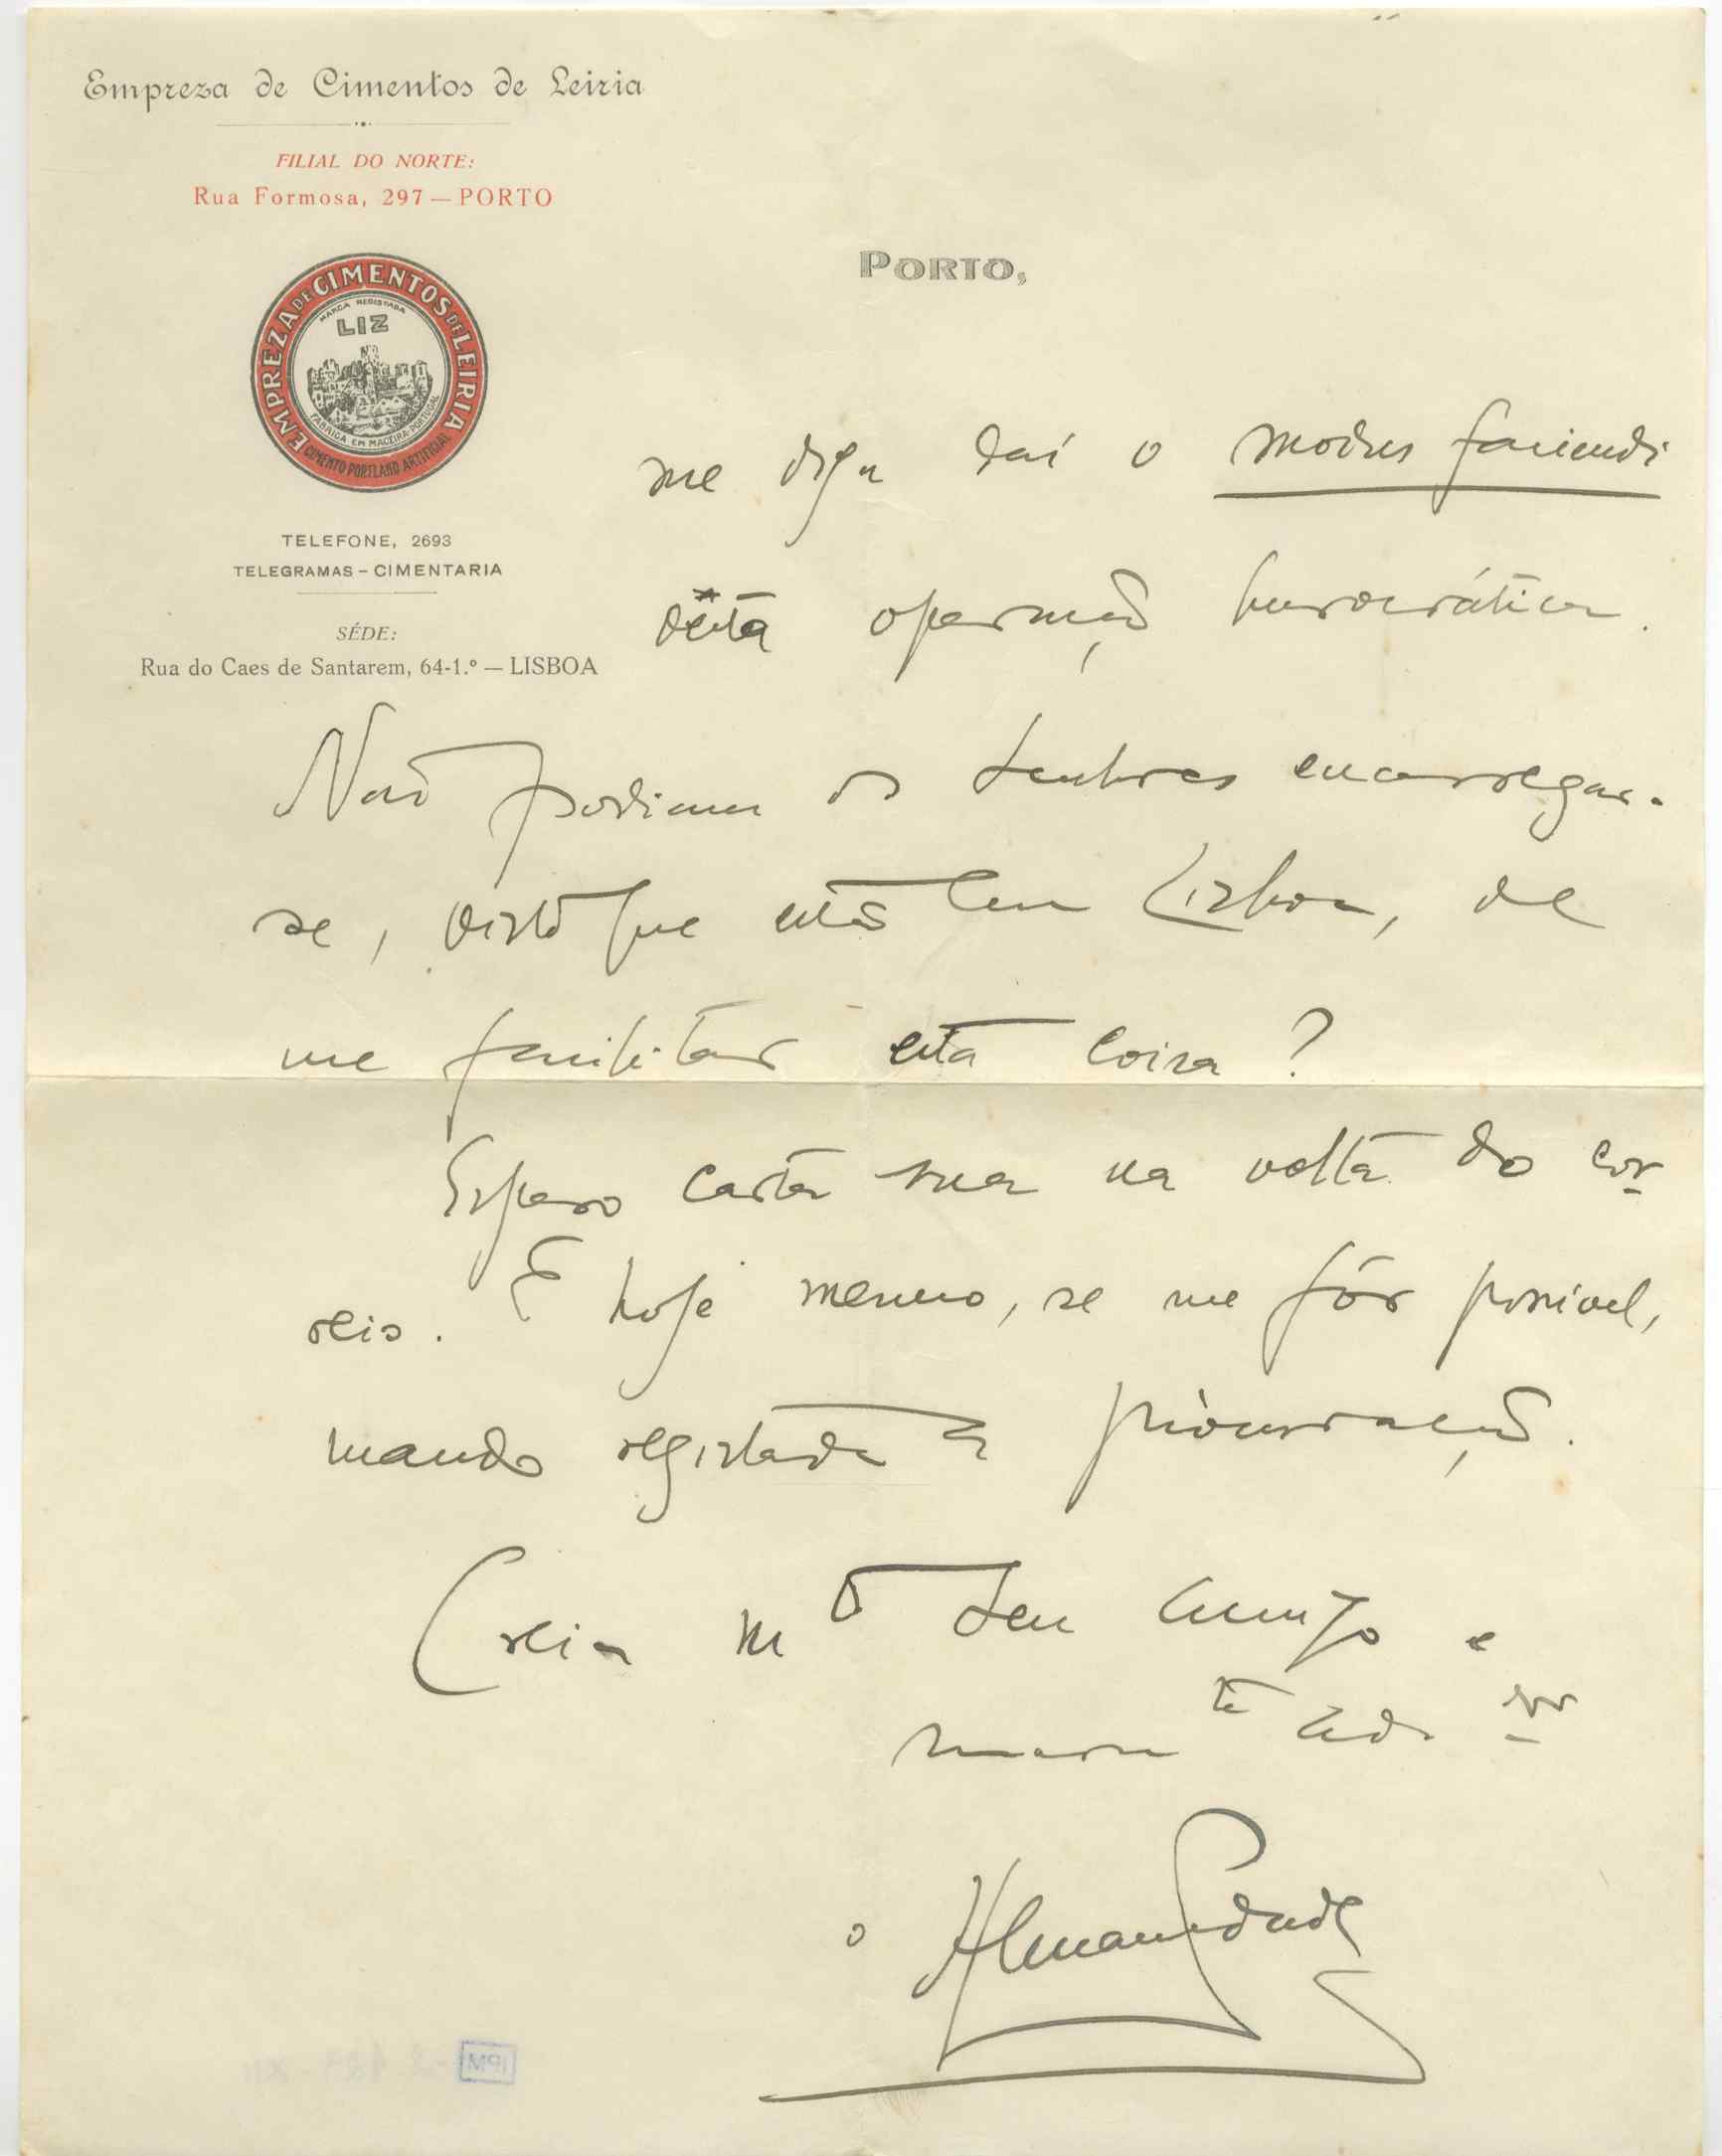 Empreza de Cimentos de Leiria
FILIAL DO NORTE:
Rua Formosa, 297 — PORTO
PORTO,
EMPREZA DE CIMENTOS DE LEIRIA
MARCA REGISTADA
LIZ
FABRICA EM MACEIRA-PORTUGAL
CIMENTO PORTLAND ARTIFICIAL
TELEFONE, 2693
TELEGRAMAS – CIMENTARIA
SÉDE:
Rua do Caes de Santarem, 64-1.º — LISBOA
me diga daí o modus faciendi
desta operação burocrática.
Não podiam os senhores encarregar-
se, visto que estão em Lisboa, de
me facilitar esta coisa?
Espero carta sua na volta do cor-
reio. E hoje mesmo, se me fôr possivel,
mando registada a procuração.
Creia m.to seu amigo e
te adm.or
o
MPI